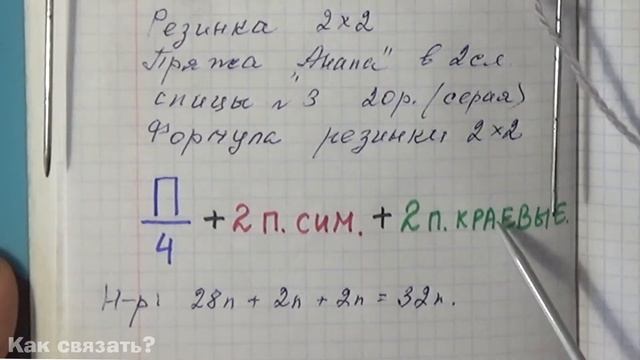 Резинка 2×2
Пряжа "Анапа" в 2 сл.
спицы №3 2ор. (серая)
Формула резинки 2×2
П/4 + 2 п. сим. + 2 п. краевые.
Н-р: 28п + 2п + 2п = 32п.
Как связать?